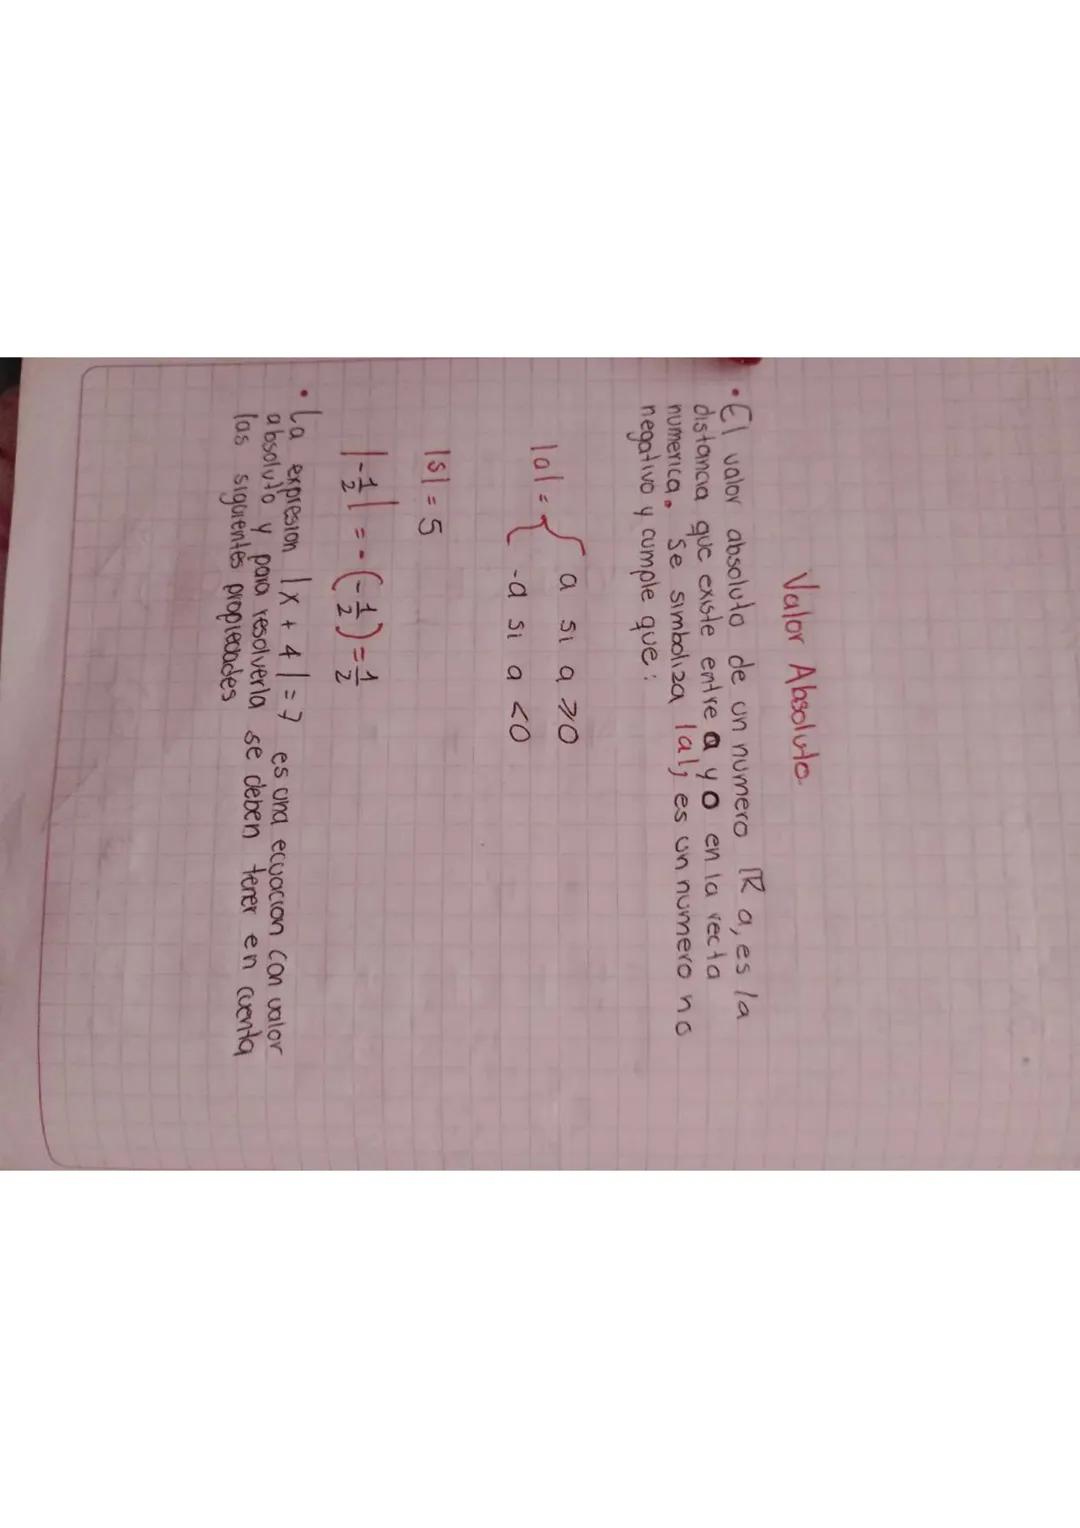 Valor Absoluto
• El valor absoluto de un numero ℝ a, es la
distancia que existe entre a y 0 en la recta
numerica. Se simboliza |a|; es un numero no
negativo y cumple que:
|a| = { a si a ≥ 0
-a si a < 0
|5| = 5
|-1/2| = -(-1/2) = 1/2
• La expresion |x + 4| = 7 es una ecuacion con valor
absoluto y para resolverla se deben tener en cuenta
las siguientes propiedades